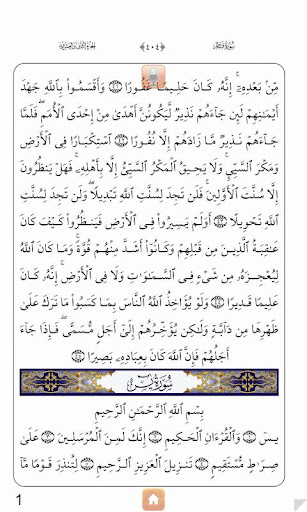 سُورَةُ فَاطِرٍ ﴿٤٠٤﴾ الجزء الثاني والعشرون
مِّنۢ بَعْدِهِۦٓ ۚ إِنَّهُۥ كَانَ حَلِيمًا غَفُورًا ۝ وَأَقْسَمُوا۟ بِٱللَّهِ جَهْدَ
أَيْمَـٰنِهِمْ لَئِن جَآءَهُمْ نَذِيرٌ لَّيَكُونُنَّ أَهْدَىٰ مِنْ إِحْدَى ٱلْأُمَمِ ۖ فَلَمَّا
جَآءَهُمْ نَذِيرٌ مَّا زَادَهُمْ إِلَّا نُفُورًا ۝ ٱسْتِكْبَارًا فِى ٱلْأَرْضِ
وَمَكْرَ ٱلسَّيِّئِ ۚ وَلَا يَحِيقُ ٱلْمَكْرُ ٱلسَّيِّئُ إِلَّا بِأَهْلِهِۦ ۚ فَهَلْ يَنظُرُونَ
إِلَّا سُنَّتَ ٱلْأَوَّلِينَ ۚ فَلَن تَجِدَ لِسُنَّتِ ٱللَّهِ تَبْدِيلًا ۖ وَلَن تَجِدَ لِسُنَّتِ
ٱللَّهِ تَحْوِيلًا ۝ أَوَلَمْ يَسِيرُوا۟ فِى ٱلْأَرْضِ فَيَنظُرُوا۟ كَيْفَ كَانَ
عَـٰقِبَةُ ٱلَّذِينَ مِن قَبْلِهِمْ وَكَانُوٓا۟ أَشَدَّ مِنْهُمْ قُوَّةً ۚ وَمَا كَانَ ٱللَّهُ
لِيُعْجِزَهُۥ مِن شَىْءٍ فِى ٱلسَّمَـٰوَٰتِ وَلَا فِى ٱلْأَرْضِ ۚ إِنَّهُۥ كَانَ
عَلِيمًا قَدِيرًا ۝ وَلَوْ يُؤَاخِذُ ٱللَّهُ ٱلنَّاسَ بِمَا كَسَبُوا۟ مَا تَرَكَ عَلَىٰ
ظَهْرِهَا مِن دَآبَّةٍ وَلَـٰكِن يُؤَخِّرُهُمْ إِلَىٰٓ أَجَلٍ مُّسَمًّى ۖ فَإِذَا جَآءَ
أَجَلُهُمْ فَإِنَّ ٱللَّهَ كَانَ بِعِبَادِهِۦ بَصِيرًۢا ۝
سُورَةُ يسٓ
بِسْمِ ٱللَّهِ ٱلرَّحْمَـٰنِ ٱلرَّحِيمِ
يسٓ ۝ وَٱلْقُرْءَانِ ٱلْحَكِيمِ ۝ إِنَّكَ لَمِنَ ٱلْمُرْسَلِينَ ۝ عَلَىٰ
صِرَٰطٍ مُّسْتَقِيمٍ ۝ تَنزِيلَ ٱلْعَزِيزِ ٱلرَّحِيمِ ۝ لِتُنذِرَ قَوْمًا مَّآ
1